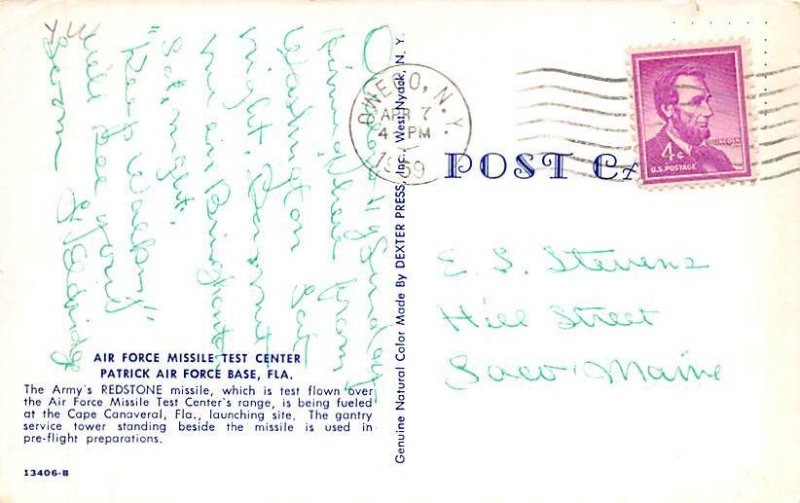 OWEGO, N.Y.
APR 7
4 PM
1959
4¢
LINCOLN
U.S. POSTAGE
POST CA
E. S. Stevens
Hill Street
Saco Maine
Sunday
from
Washington Sat.
night.
in Binghamton
Sat. night.
"Keep Walking"
Will see you
Soon
AIR FORCE MISSILE TEST CENTER
PATRICK AIR FORCE BASE, FLA.
The Army's REDSTONE missile, which is test flown over
the Air Force Missile Test Center's range, is being fueled
at the Cape Canaveral, Fla., launching site. The gantry
service tower standing beside the missile is used in
pre-flight preparations.
13406-B
Genuine Natural Color Made By DEXTER PRESS, Inc., West Nyack, N. Y.